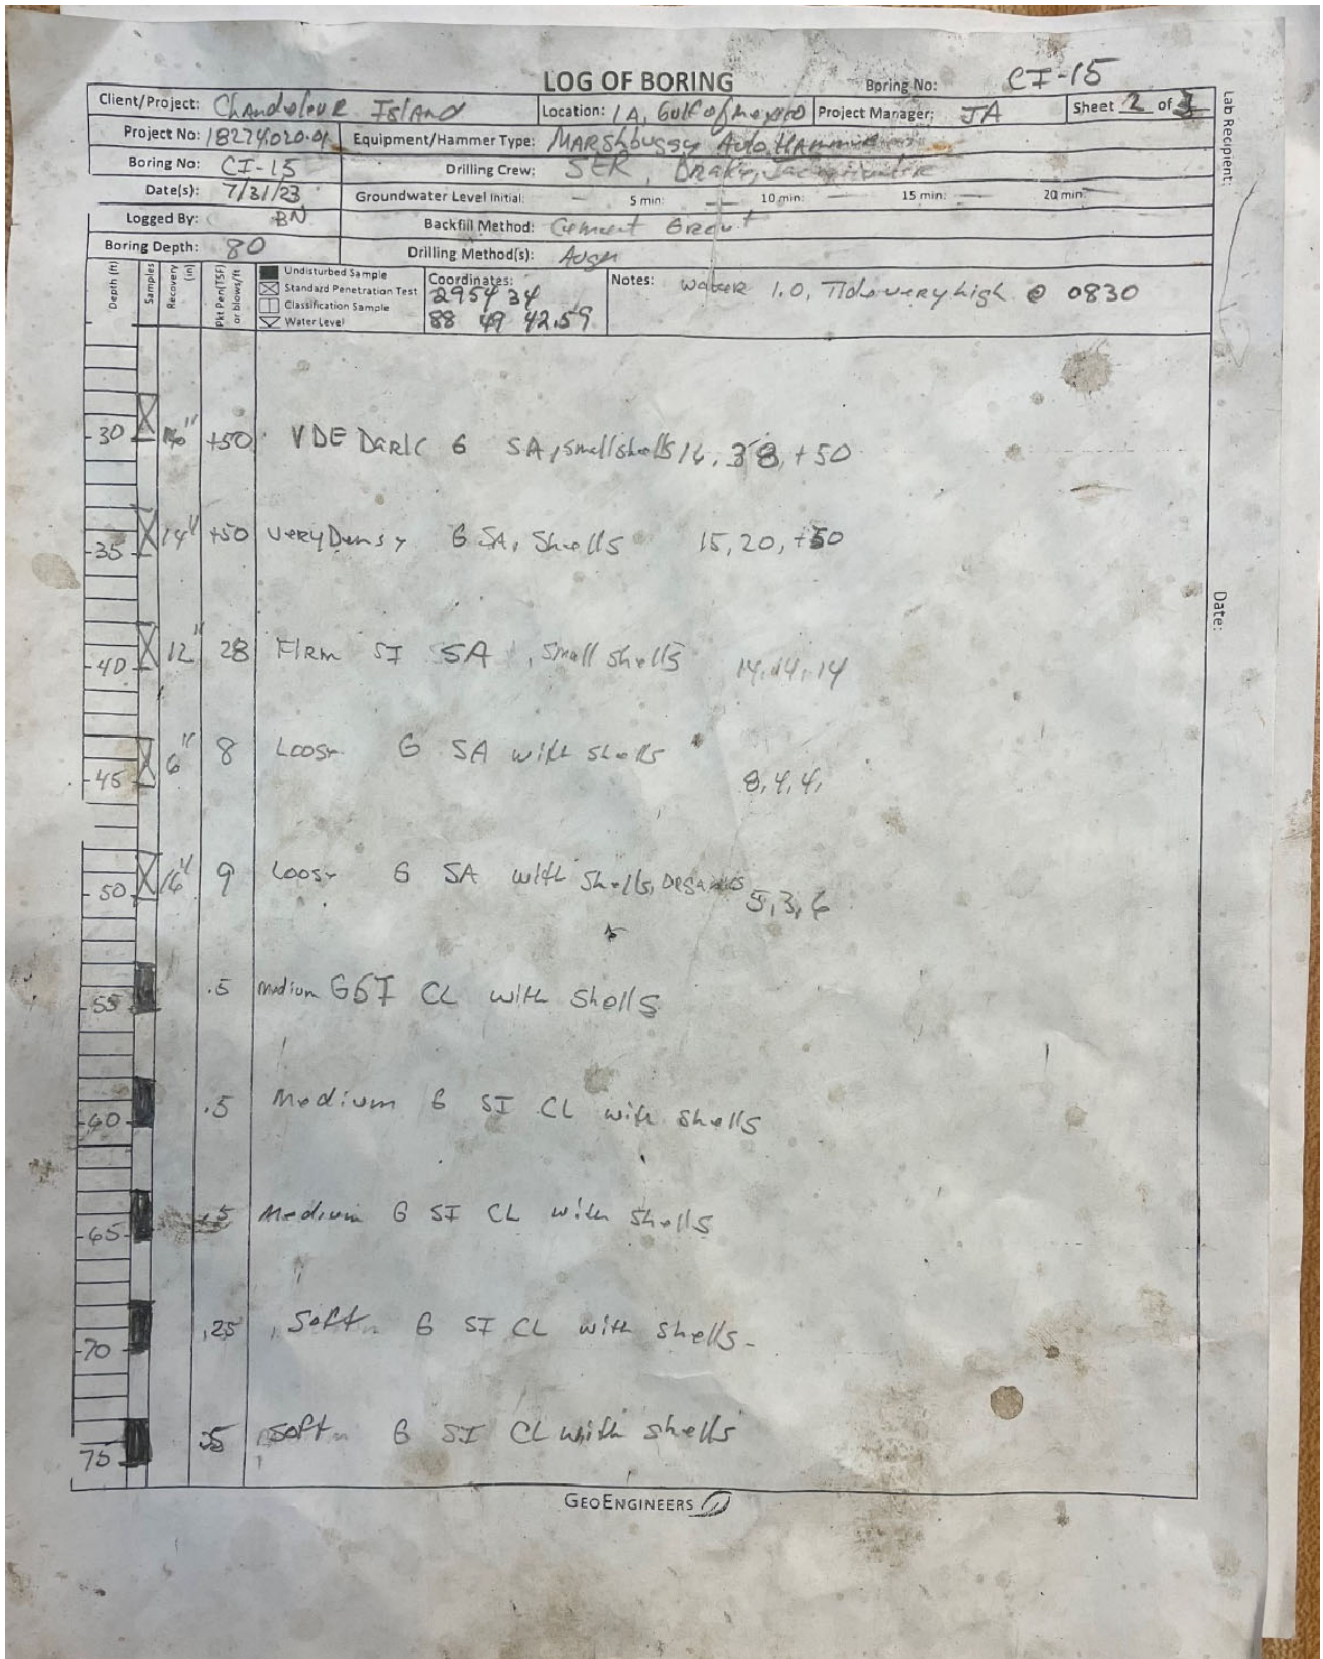 LOG OF BORING Boring No: CI-15
Client/Project: Chandeleur Island Location: LA, Gulf of Mexico Project Manager: JA Sheet 2 of 3
Project No: 18274020.01 Equipment/Hammer Type: MARShbuggy Auto Hammer
Boring No: CI-15 Drilling Crew: SER, Drake,
Date(s): 7/31/23 Groundwater Level Initial: — 5 min: — 10 min: — 15 min: — 20 min:
Logged By: BN Backfill Method: Cement Grout
Boring Depth: 80 Drilling Method(s): Auger
Depth (ft) Samples Recovery (in) Pkt Pen(TSF) or blows/ft
Undisturbed Sample
Standard Penetration Test
Classification Sample
Water Level
Coordinates:
2954 34
88 49 42.59
Notes: water 1.0, Tide very high @ 0830
Lab Recipient:
Date:
-30 +50 VDE Dark G SA, Small shells 16, 38, +50
-35 14" +50 Very Dense G SA, Shells 15, 20, +50
-40 12" 28 FIRM SI SA, Small shells 14, 14, 14
-45 6" 8 Loose G SA with shells 8, 4, 4,
-50 16" 9 Loose G SA with Shells, organics 5, 3, 6
-55 .5 Medium G SI CL with Shells
-60 .5 Medium G SI CL with shells
-65 .5 Medium G SI CL with Shells
-70 .25 Soft G SI CL with shells-
75 Soft G SI CL with shells
GEOENGINEERS